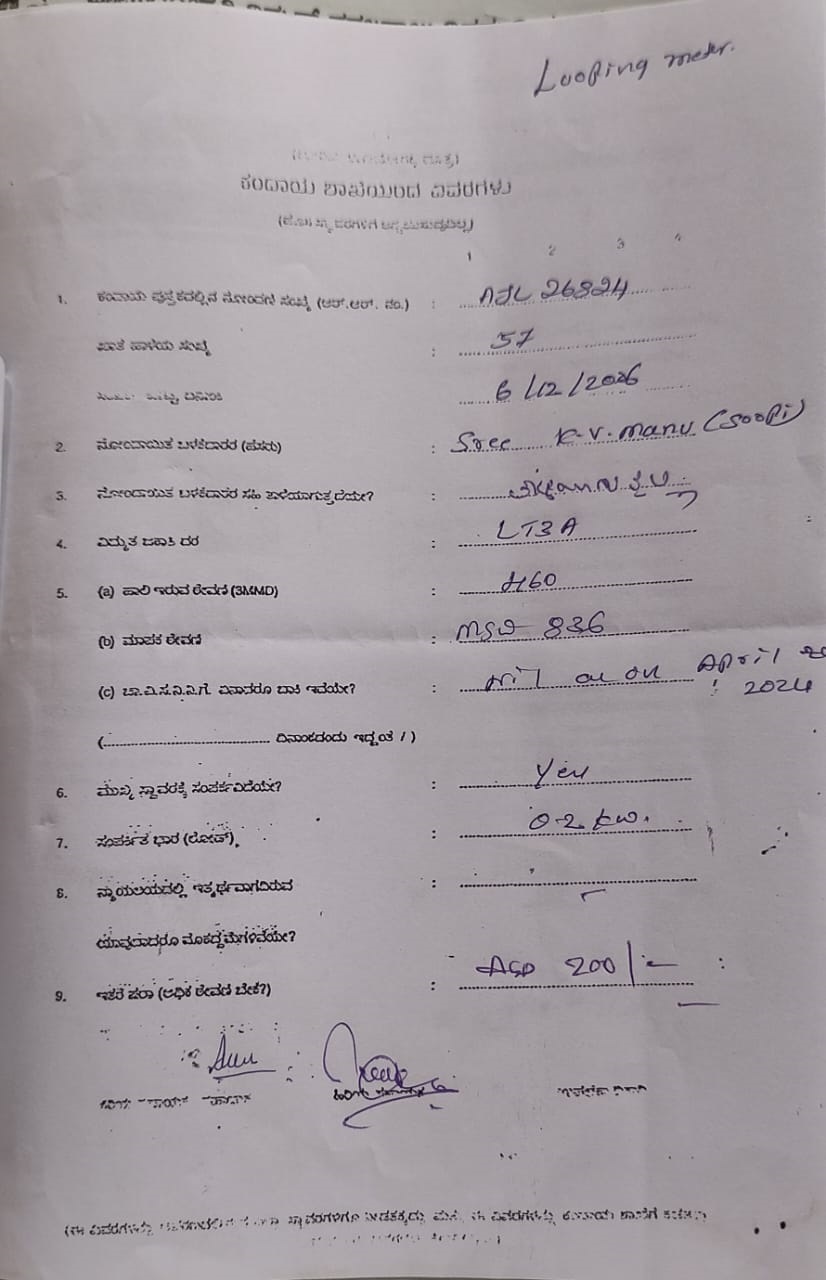 Looping meter.
ಕಂದಾಯ ಶಾಖೆಯಿಂದ ವಿವರಗಳು
1 2 3 4
1. ಕಂದಾಯ ಪುಸ್ತಕದಲ್ಲಿನ ನೋಂದಣಿ ಸಂಖ್ಯೆ (ಆರ್.ಆರ್. ನಂ.) : AJL 26824
ಖಾತೆ ಹಾಳೆಯ ಸಂಖ್ಯೆ : 57
6/12/2006
2. ನೋಂದಾಯಿತ ಬಳಕೆದಾರರ (ಹೆಸರು) : Sree K.V. manu (Soopi)
3. ನೋಂದಾಯಿತ ಬಳಕೆದಾರರ ಸಹಿ ತಾಳೆಯಾಗುತ್ತದೆಯೇ? :
4. ವಿದ್ಯುತ ಜಕಾತಿ ದರ : LT3A
5. (a) ಹಾಲಿ ಇರುವ ಠೇವಣಿ (3MMD) : 460
(b) ಮಾಪಕ ಠೇವಣಿ : MSD 836
(c) ಚಾ.ವಿ.ಸ.ನಿ.ನಿ.ಗೆ. ಏನಾದರೂ ಬಾಕಿ ಇದೆಯೇ? : Nil as on April
2024
(.............................. ದಿನಾಂಕದಂದು ಇದ್ದಂತೆ / )
6. ಮುಖ್ಯ ಸ್ಥಾವರಕ್ಕೆ ಸಂಪರ್ಕವಿದೆಯೇ? : Yes
7. ಸಂಪರ್ಕಿತ ಭಾರ (ಲೋಡ್) : 0-2 kw.
8. ನ್ಯಾಯಲಯದಲ್ಲಿ ಇತ್ಯರ್ಥವಾಗದಿರುವ :
ಯಾವುದಾದರೂ ಮೊಕದ್ದಮೆಗಳಿವೆಯೇ?
9. ಇತರೆ ಷರಾ (ಅಧಿಕ ಠೇವಣಿ ಬೇಕೆ?) : ASD 200/-